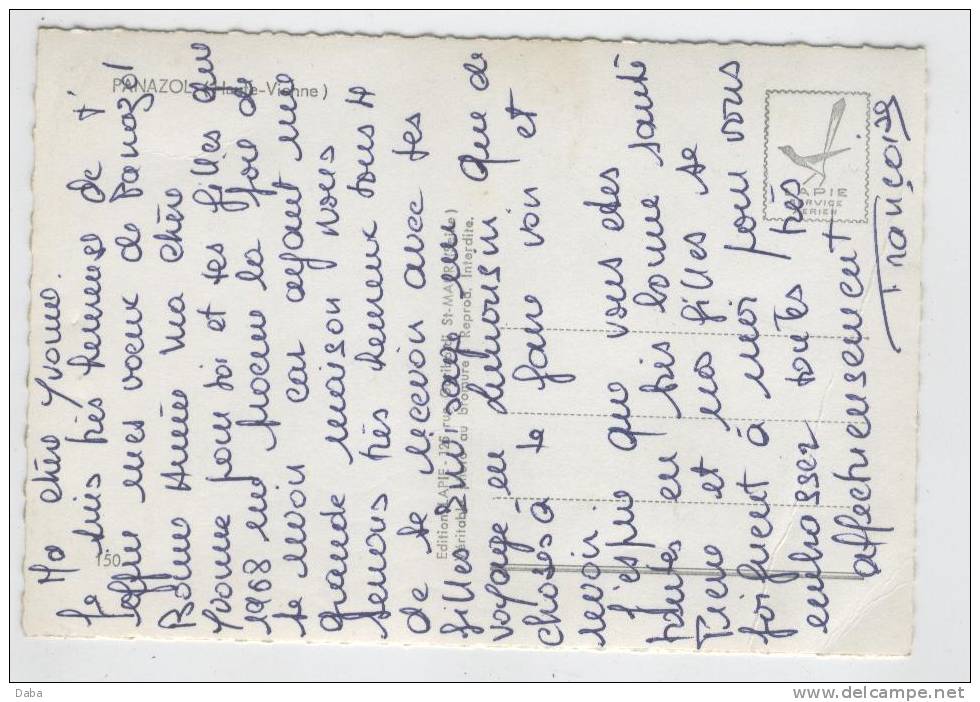 Ma chère Yvonne
Je suis très heureuse de t'
offrir mes voeux de Panazol
Bonne Année ma chère
Yvonne pour toi et tes filles que
1968 me procure la joie de
te revoir car ayant une
grande maison nous
serons très heureux tous 4
de te recevoir avec tes
filles. J'envisage un
voyage en Limousin que de
choses à te faire voir et
revoir.
J'espère que vous êtes
toutes en très bonne santé
Pierre et nos filles se
joignent à moi pour vous
embrasser toutes très
affectueusement.
Françoise
PANAZOL (Haute-Vienne)
150
Edition LAPIE - 126 rue St-MAUR (Seine)
Véritable Photo au Bromure Reprod. Interdite.
LAPIE
SERVICE
AERIEN
Daba
www.delcampe.net